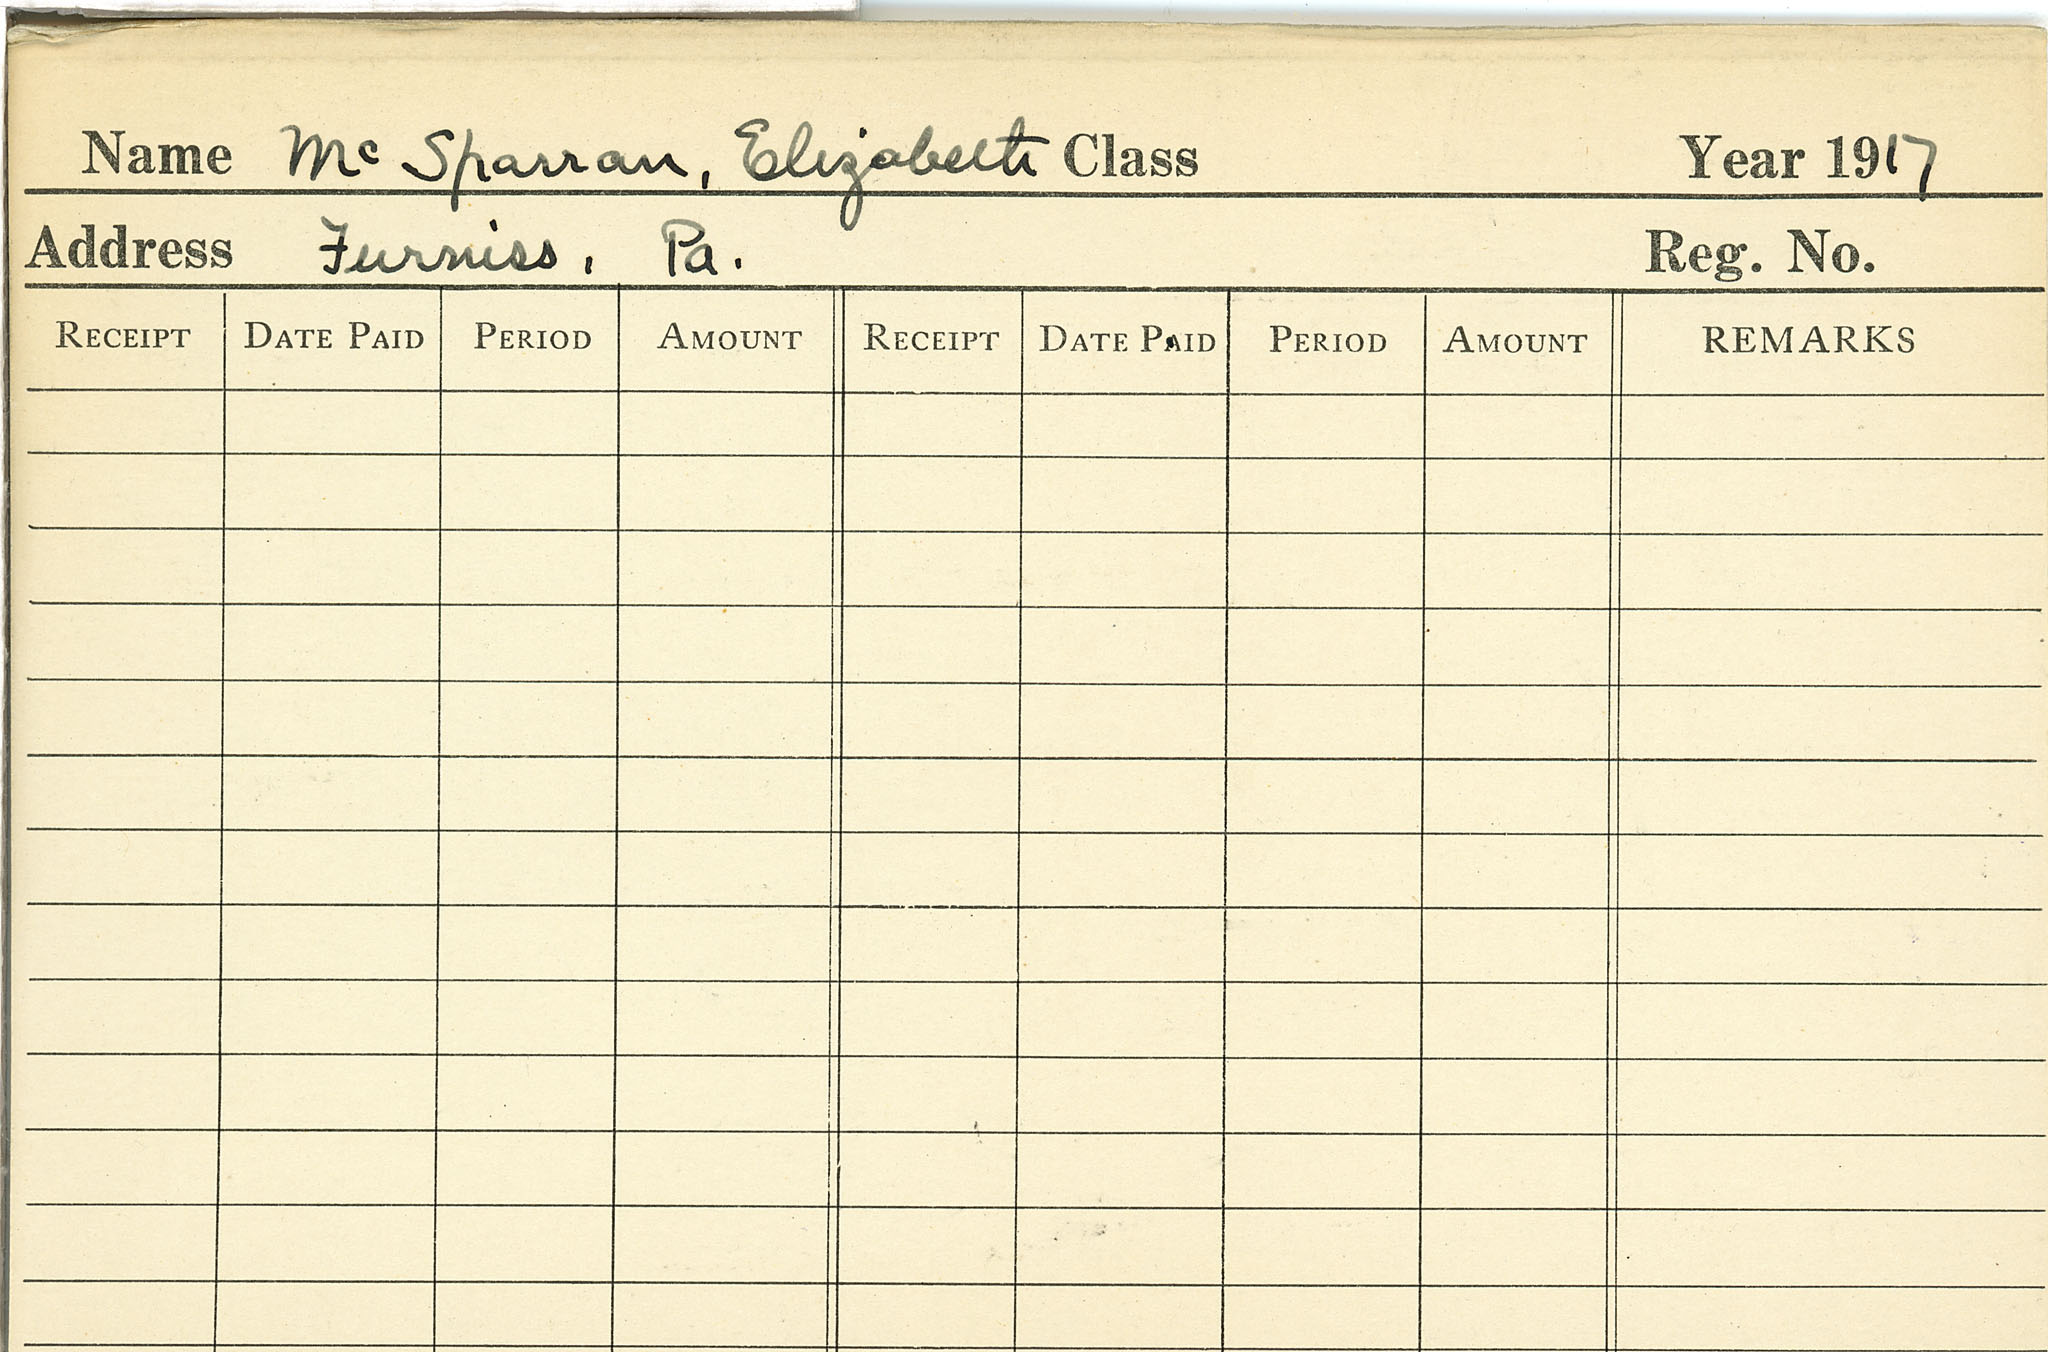 Name Mc Sparran, Elizabeth Class Year 1917
Address Furniss, Pa. Reg. No.
RECEIPT DATE PAID PERIOD AMOUNT RECEIPT DATE PAID PERIOD AMOUNT REMARKS